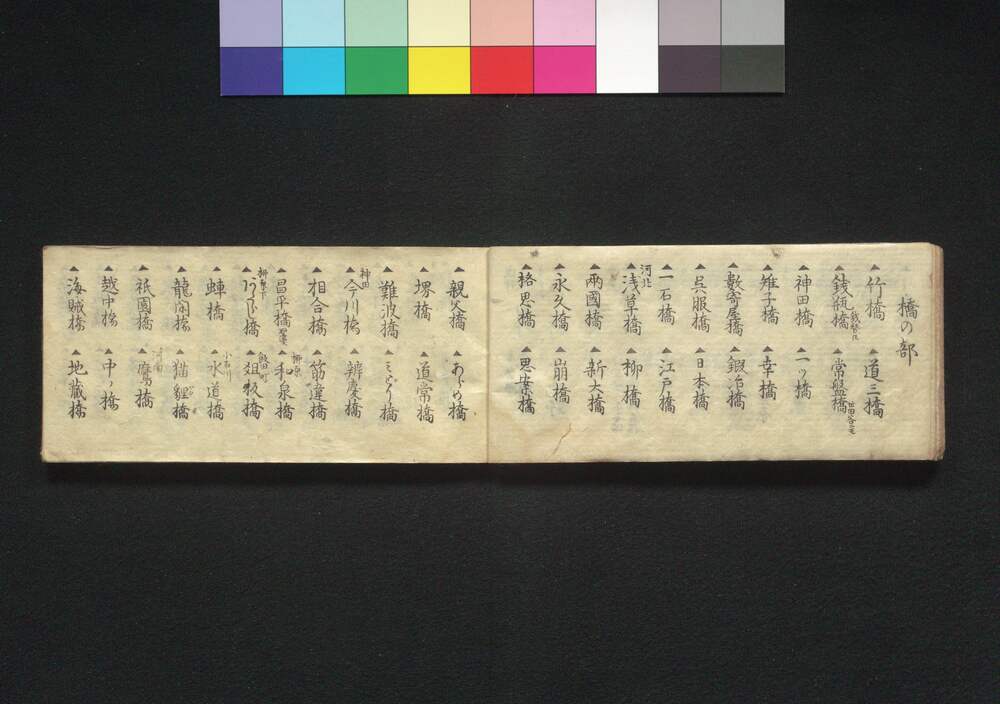 橋の部
▲竹橋 ▲道三橋
▲銭瓶橋 ▲常盤橋
▲神田橋 ▲一ツ橋
▲雉子橋 ▲幸橋
▲數寄屋橋 ▲鍛冶橋
▲呉服橋 ▲日本橋
▲一石橋 ▲江戸橋
▲浅草橋 ▲柳橋
▲兩國橋 ▲新大橋
▲永久橋 ▲崩橋
▲思橋 ▲思案橋
▲親父橋 ▲あらめ橋
▲堺橋 ▲道常橋
▲難波橋 ▲みどり橋
神田
▲今川橋 ▲辨慶橋
▲相合橋 ▲筋違橋
▲昌平橋 柳原 ▲和泉橋
▲橋 飯田町 ▲俎板橋
▲橋 小石川 ▲水道橋
▲龍閑橋 ▲猫貍橋
▲祇園橋 ▲鷹橋
▲越中橋 ▲中ノ橋
▲海賊橋 ▲地蔵橋